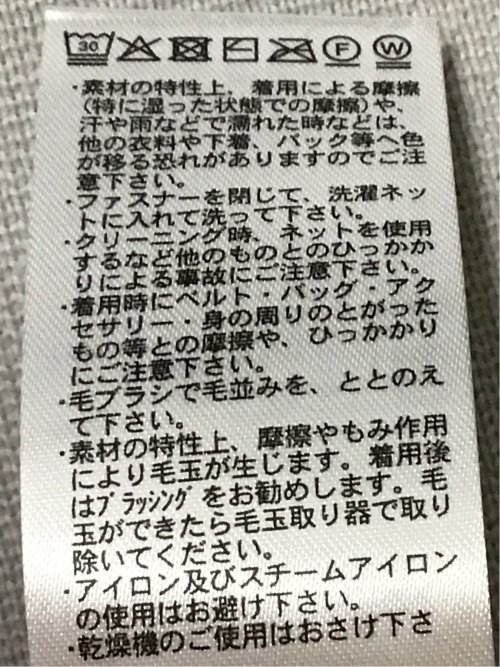 30 F W
・素材の特性上、着用による摩擦
(特に湿った状態での摩擦)や、
汗や雨などで濡れた時などは、
他の衣料や下着、バック等へ色
が移る恐れがありますのでご注
意下さい。
・ファスナーを閉じて、洗濯ネッ
トに入れて洗って下さい。
・クリーニング時、ネットを使用
するなど他のものとのひっかか
りによる事故にご注意下さい。
・着用時にベルト・バッグ・アク
セサリー・身の周りのとがった
もの等との摩擦や、ひっかかり
にご注意下さい。
・毛ブラシで毛並みを、ととのえ
て下さい。
・素材の特性上、摩擦やもみ作用
により毛玉が生じます。着用後
はﾌﾞﾗｯｼﾝｸﾞをお勧めします。毛
玉ができたら毛玉取り器で取り
除いてください。
・アイロン及びスチームアイロン
の使用はお避け下さい。
・乾燥機のご使用はおさけ下さ